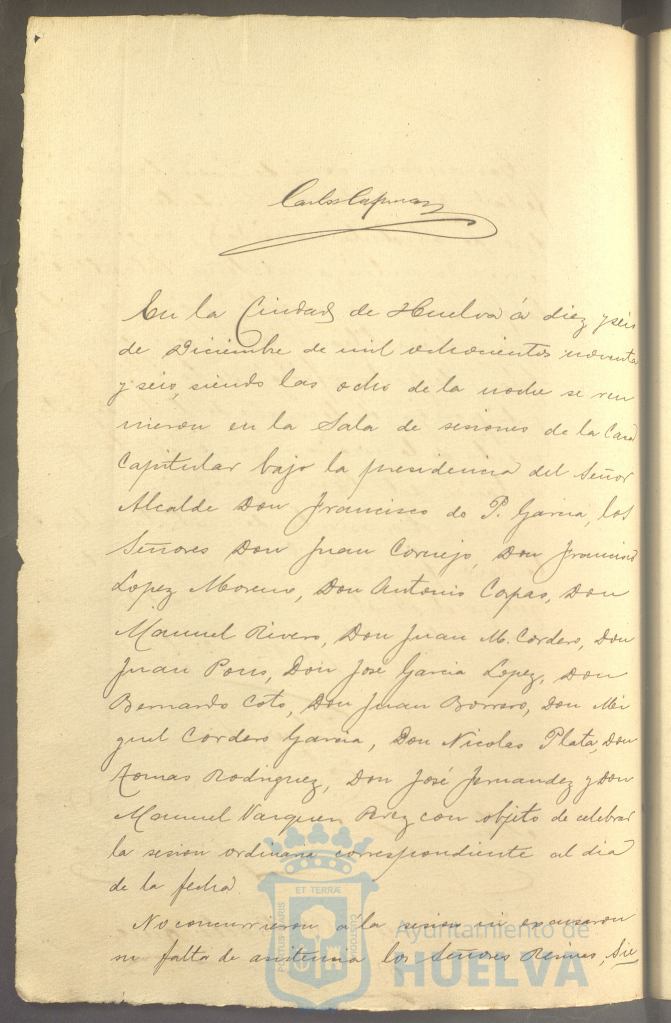 Carlos
En la Ciudad de Huelva á diez y seis
de Diciembre de mil ochocientos noventa
y seis, siendo las ocho de la noche se reu
nieron en la Sala de sesiones de la Casa
Capitular bajo la presidencia del Señor
Alcalde Don Francisco de P. Garcia, los
Señores Don Juan Cornejo, Don Francisco
Lopez Moreno, Don Antonio Capas, Don
Manuel Rivero, Don Juan M. Cordero, Don
Juan Pons, Don José Garcia Lopez, Don
Bernardo Coto, Don Juan Borrero, Don Mi
guel Cordero Garcia, Don Nicolas Plata, Don
Tomas Rodriguez, Don José Fernandez y Don
Manuel Vazquez Perez con objeto de celebrar
la sesion ordinaria correspondiente al dia
de la fecha.
No concurrieron a la sesion ni excusaron
su falta de asistencia los Señores
ET TERRÆ
PORTUS MARIS
CUSTODIA
Ayuntamiento de
HUELVA